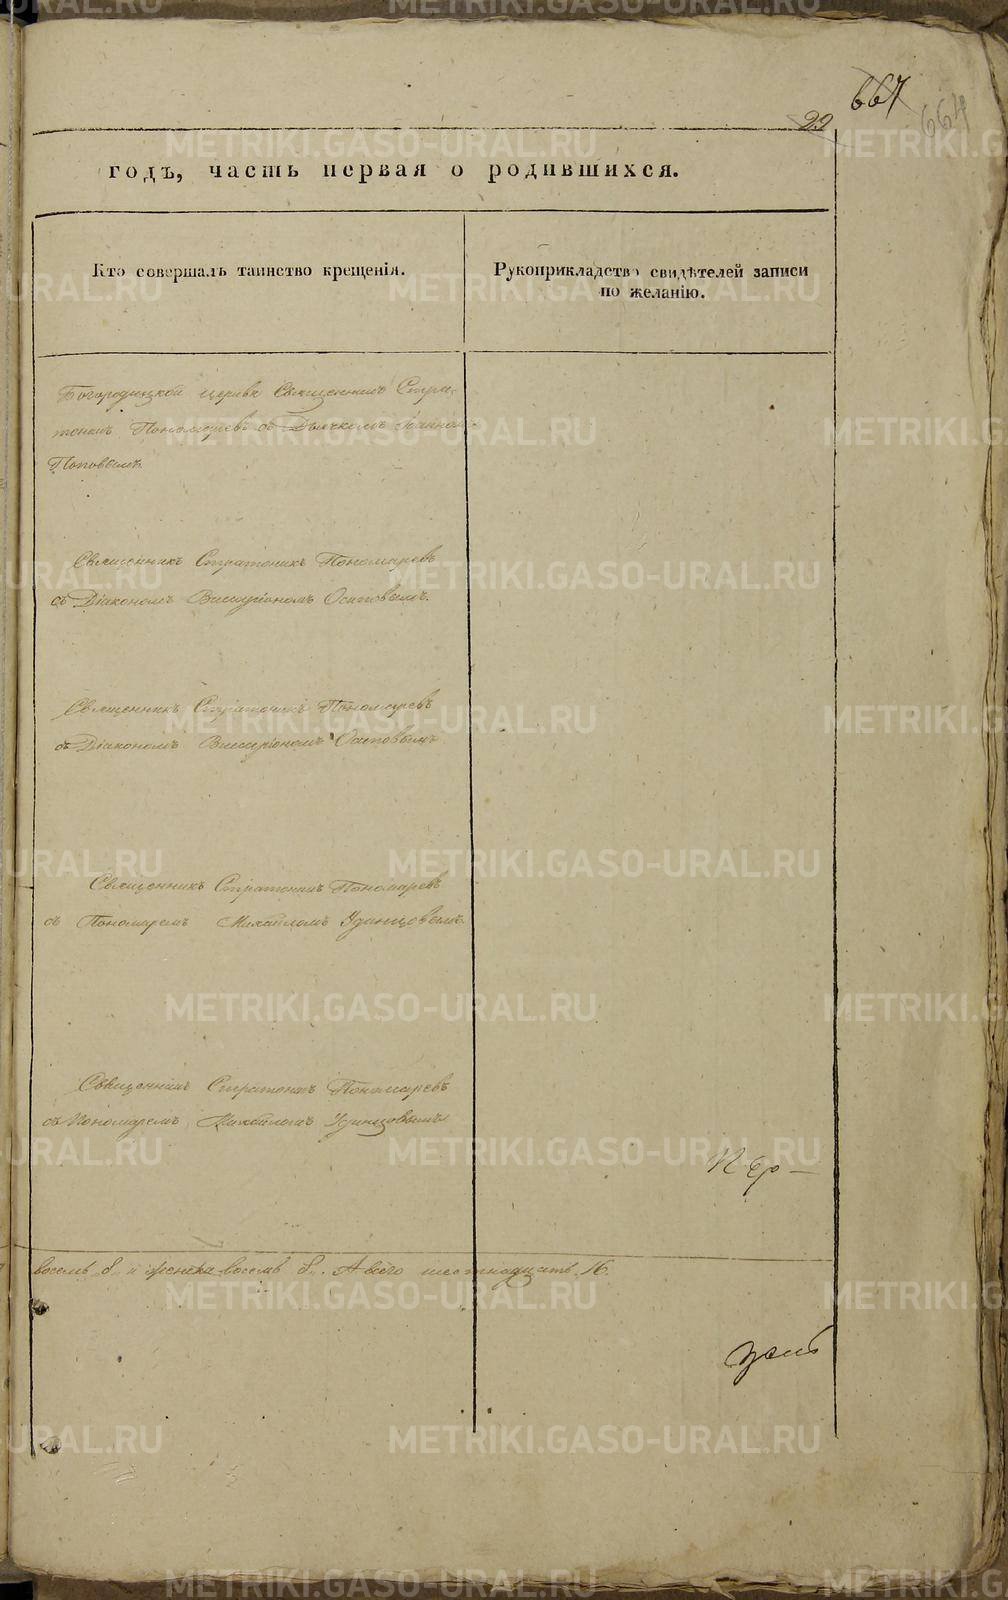 667
664
22
годъ, часть первая о родившихся.
Кто совершалъ таинство крещенія.
Рукоприкладство свидѣтелей записи
по желанію.
Богородицкой церкви Священникъ Стра-
тоникъ Пономаревъ съ Дьячкомъ Іоанномъ
Поповымъ.
Священникъ Стратоникъ Пономаревъ
съ Діакономъ Виссаріономъ Осиповымъ.
Священникъ Стратоникъ Пономаревъ
съ Діакономъ Виссаріономъ Осиповымъ
Священникъ Стратоникъ Пономаревъ
съ Пономаремъ Михайломъ Удинцовымъ.
Священникъ Стратоникъ Пономаревъ
съ Пономаремъ Михайломъ Удинцовымъ
восемь 8. и женска восемь 8. А всего шестнадцать 16.
METRIKI.GASO-URAL.RU